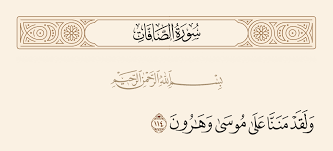 سُورَةُ الصَّافَّاتِ
بِسْمِ اللَّهِ الرَّحْمَٰنِ الرَّحِيمِ
وَلَقَدْ مَنَنَّا عَلَىٰ مُوسَىٰ وَهَارُونَ ١١٤